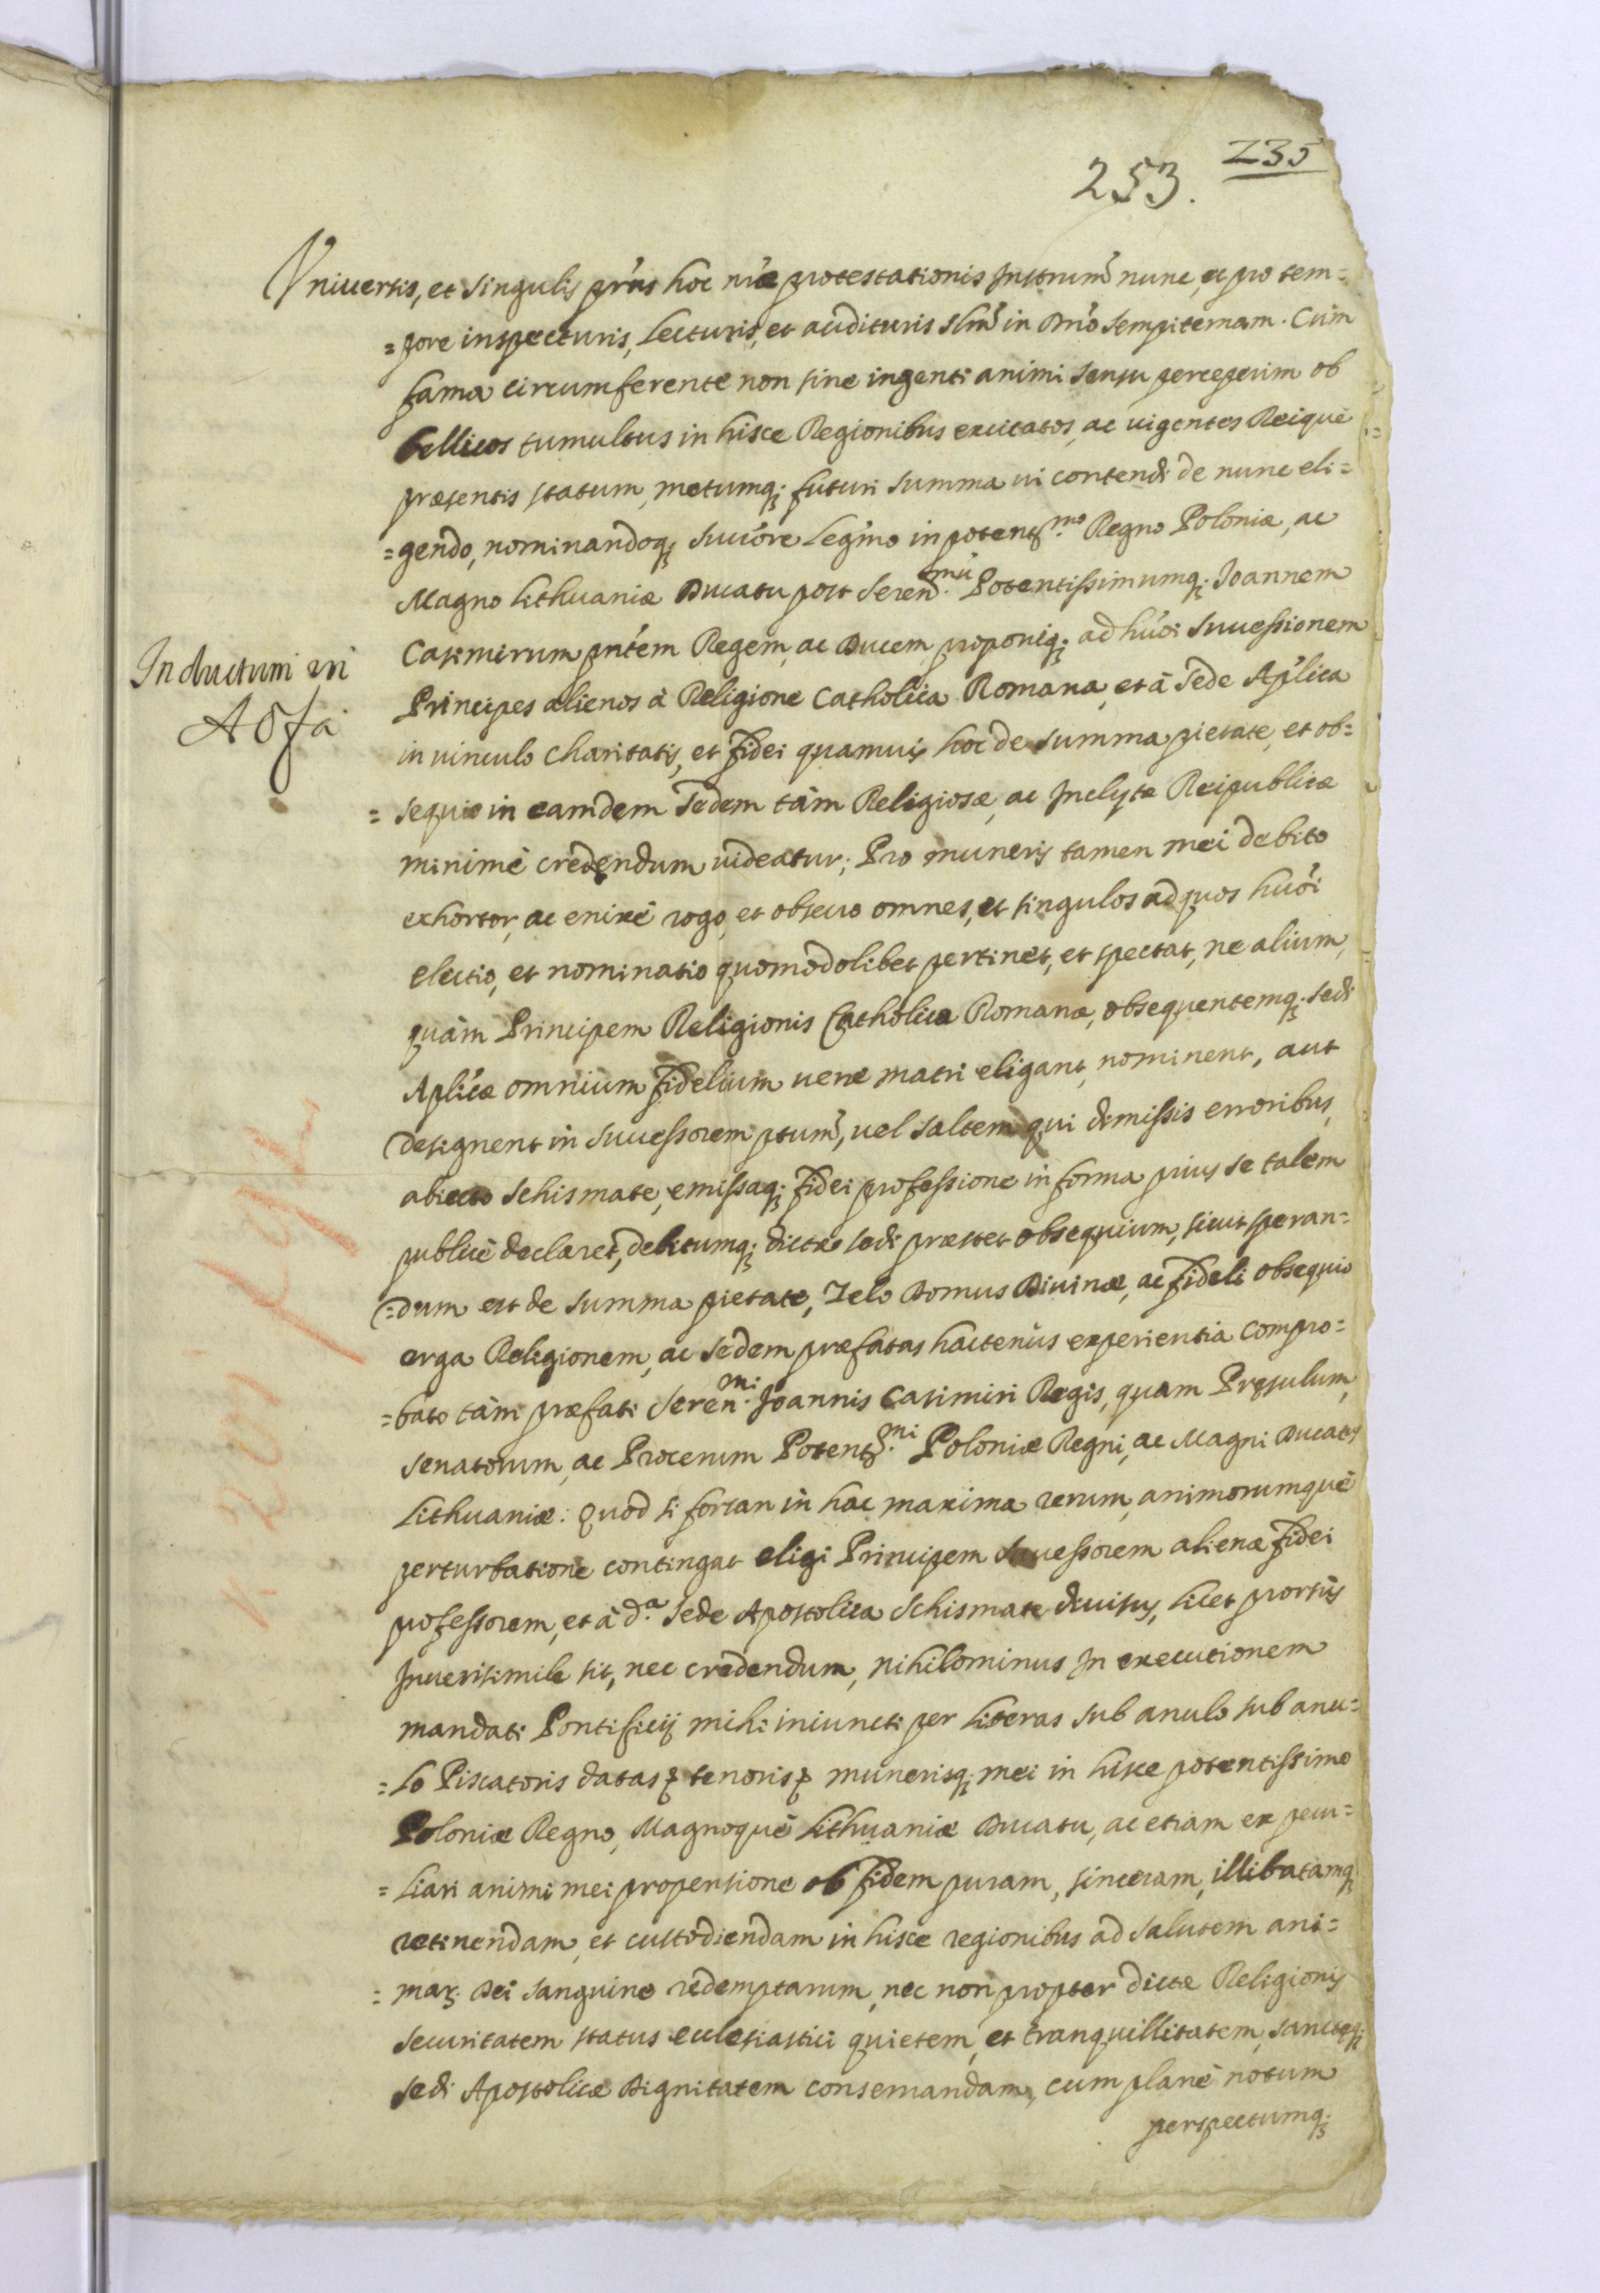 235
253.
Vniuersis, et singulis pr̃ns hoc nr̃æ protestationis Instrum̃ nunc, et pro tem=
=pore inspecturis, Lecturis, et audituris slm̃ in Dnõ sempiternam. Cùm
fama circumferente non sine ingenti animi sensu perceperim ob
bellicos tumultus in hisce Regionibus excitatos, ac uigentes Reiquè
præsentis statum, metumq; futuri summa ui contendi de nunc eli=
=gendo, nominandoq; Succõre Legm̃o in potentis.mo Regno Poloniæ, ac
Magno Lithuaniæ Ducatu post Seren.mũ Potentissimumq; Joannem
Casimirum pñtem Regem, ac Ducem proponiq; ad hũõi Successionem
Principes alienos à Religione Catholica Romana, et à Sede Aplica
in uinculo Charitatis, et fidei quamuis hoc de summa pietate, et ob=
=sequio in eamdem Sedem tàm Religiosæ, ac Inclytæ Reipublicæ
minimè credendum uideatur; Pro muneris tamen mei debito
exhortor, ac enixè rogo, et obsecro omnes, et singulos ad quos hũõi
electio, et nominatio quomodolibet pertinet, et spectat, ne alium,
quàm Principem Religionis Catholicæ Romanæ, obsequentemq; sedi
Aplicæ omnium fidelium ueræ matri eligant, nominent, aut
designent in Successorem ptum̃, uel saltem qui dimissis erroribus,
abiecto Schismate, emissaq; fidei professione in forma prius se talem
publicè declaret, debitumq; dictæ sedi præstet obsequium, sicut speran=
=dum est de summa pietate, Zelo Domus Diuinæ, ac fideli obsequio
erga Religionem, ac sedem præfatas hactenùs experientia compro=
=bato tàm præfati Seren.mi Joannis Casimiri Regis, quam Præsulum,
Senatorum, ac Procerum Potentis.mi Poloniæ Regni, ac Magni Ducatus
Lithuaniæ: Quod si forsan in hac maxima rerum, animorumquè
perturbatione contingat eligi Principem Successorem alienæ fidei
professorem, et à d.a Sede Apostolica Schismate diuisus, licet prorsùs
Inuerisimile sit, nec credendum, nihilominus In executionem
mandati Pontificij mihi iniuncti per literas sub anulo sub anu=
=lo Piscatoris datas tenoris munerisq; mei in hisce potentissimo
Poloniæ Regno, Magnoquè Lithuaniæ Ducatu, ac etiam ex pecu=
=liari animi mei propensione ob fidem puram, sinceram, illibatamq;
retinendam, et custodiendam in hisce regionibus ad salutem ani=
=mar; Dei sanguine redemptarum, nec non propter dictæ Religionis
securitatem status ecclesiastici quietem, et tranquillitatem, sanctæq;
sedi Apostolicæ Dignitatem conseruandam, cum planè notum
perspectumq;
Inductum in
Acta